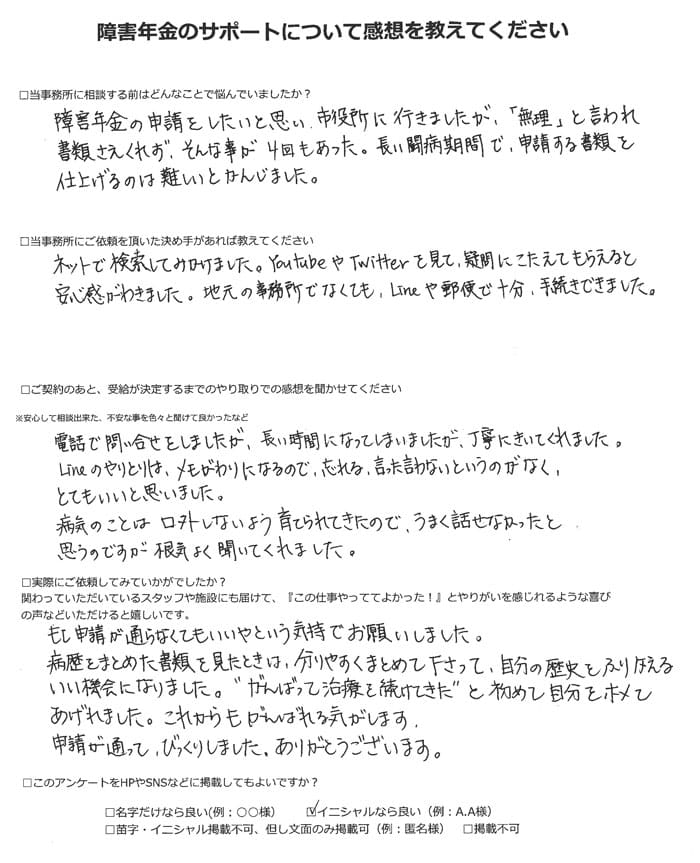 障害年金のサポートについて感想を教えてください
□当事務所に相談する前はどんなことで悩んでいましたか？
障害年金の申請をしたいと思い、市役所に行きましたが、「無理」と言われ
書類さえくれず、そんな事が4回もあった。長い闘病期間で、申請する書類を
仕上げるのは難しいとかんじました。
□当事務所にご依頼を頂いた決め手があれば教えてください
ネットで検索してみかけました。YoutubeやTwitterを見て、疑問にこたえてもらえると
安心感がわきました。地元の事務所でなくても、Lineや郵便で十分、手続きできました。
□ご契約のあと、受給が決定するまでのやり取りでの感想を聞かせてください
※安心して相談出来た、不安な事を色々と聞けて良かったなど
電話で問い合せをしましたが、長い時間になってしまいましたが、丁寧にきいてくれました。
Lineのやりとりは、メモがわりになるので、忘れる、言った言わないというのがなく、
とてもいいと思いました。
病気のことは口外しないよう育てられてきたので、うまく話せなかったと
思うのですが根気よく聞いてくれました。
□実際にご依頼してみていかがでしたか？
関わっていただいているスタッフや施設にも届けて、『この仕事やっててよかった！』とやりがいを感じれるような喜び
の声などいただけると嬉しいです。
もし申請が通らなくてもいいやという気持でお願いしました。
病歴をまとめた書類を見たときは、分りやすくまとめて下さって、自分の歴史をふりかえる
いい機会になりました。"がんばって治療を続けてきた"と初めて自分をホメて
あげれました。これからもがんばれる気がします。
申請が通って、びっくりしました。ありがとうございます。
□このアンケートをHPやSNSなどに掲載してもよいですか？
□名字だけなら良い(例：〇〇様)　☑イニシャルなら良い（例：A.A様）
□苗字・イニシャル掲載不可、但し文面のみ掲載可（例：匿名様）　□掲載不可